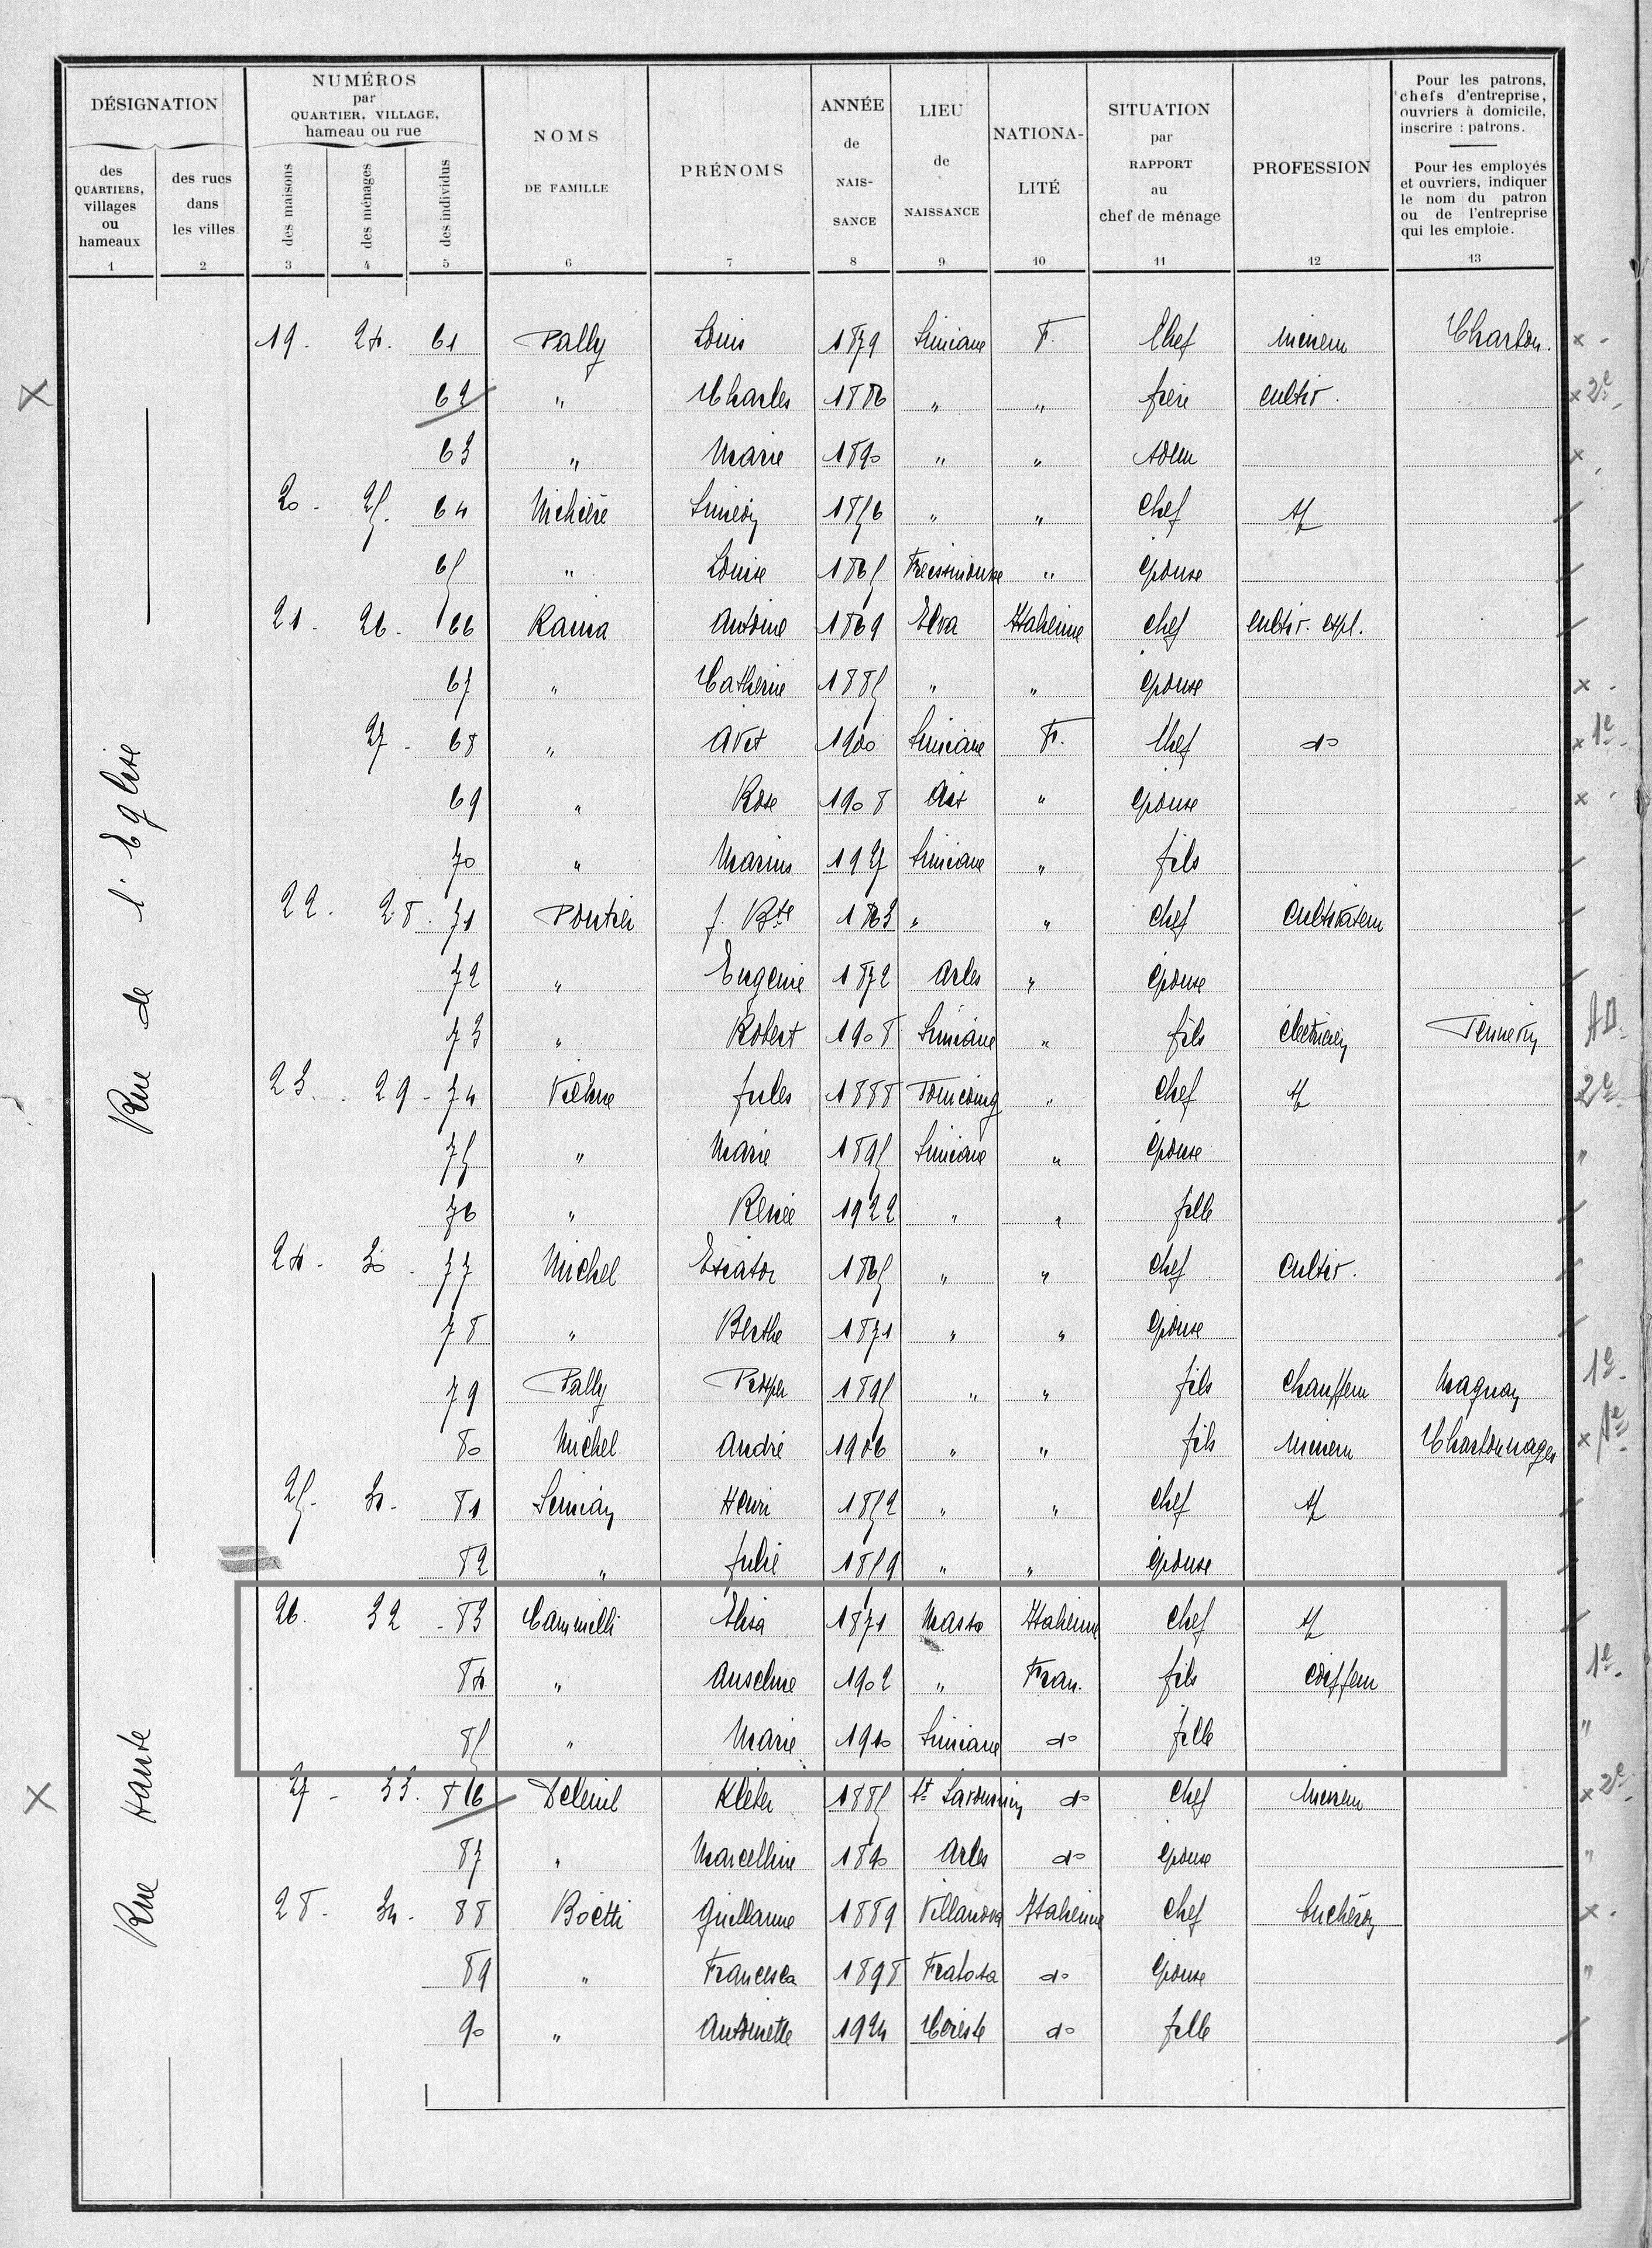 DÉSIGNATION
des QUARTIERS, villages ou hameaux
des rues dans les villes
NUMÉROS par QUARTIER, VILLAGE, hameau ou rue
des maisons
des ménages
des individus
NOMS DE FAMILLE
PRÉNOMS
ANNÉE de NAIS- SANCE
LIEU de NAISSANCE
NATIONA- LITÉ
SITUATION par RAPPORT au chef de ménage
PROFESSION
Pour les patrons, chefs d'entreprise, ouvriers à domicile, inscrire : patrons.
Pour les employés et ouvriers, indiquer le nom du patron ou de l'entreprise qui les emploie.
1 2 3 4 5 6 7 8 9 10 11 12 13
Rue de l'Eglise
19. 24. 61 Pally Louis 1879 Simiane F. Chef mineur Charbon. x
x 62 " Charles 1886 " " frère cultiv. x 2e
63 " Marie 1890 " " x
20. 25. 64 Siméon 1856 " " chef
65 " Louise 1865 " épouse
21. 26. 66 Raina Antoine 1869 Elva Italienne chef cultiv. expl.
67 " Catherine 1885 " " épouse x
27 - 68 " 1900 Simiane Fr. Chef do x 1e
69 " Rose 1908 Aix " épouse x
70 " Marius 1927 Simiane " fils
22. 28. 71 Poutier J. Bte 1863 " " chef cultivateur
72 " Eugenie 1872 Arles " épouse
73 " Robert 1908 Simiane " fils électricien
23. 29 - 74 Jules 1888 Tourcoing " chef 2e
75 " Marie 1895 Simiane " épouse "
76 " Renée 1922 " " fille
24. 30. 77 Michel 1865 " " chef cultiv.
78 " Berthe 1871 " " épouse
79 Pally Prosper 1895 " " fils chauffeur Magnan 1e
80 Michel André 1906 " " fils mineur Charbonnages x 1e
25. 31. 81 Henri 1852 " " chef
82 " Julie 1859 " " épouse
Rue Haute
26. 32 - 83 Cammilli Elisa 1871 Massa Italienne chef
84 " Anselme 1902 " Fran. fils coiffeur 1e
85 " Marie 1910 Simiane do fille "
x 27 - 33. 86 Deleuil Kléber 1885 St Savournin do chef mineur x 2e
87 " Marcelline 1890 Arles do épouse "
28. 34. 88 Boetti Guillaume 1889 Villanova Italienne chef bucheron x
89 " Francesca 1898 do épouse "
90 " Antoinette 1924 Céreste do fille